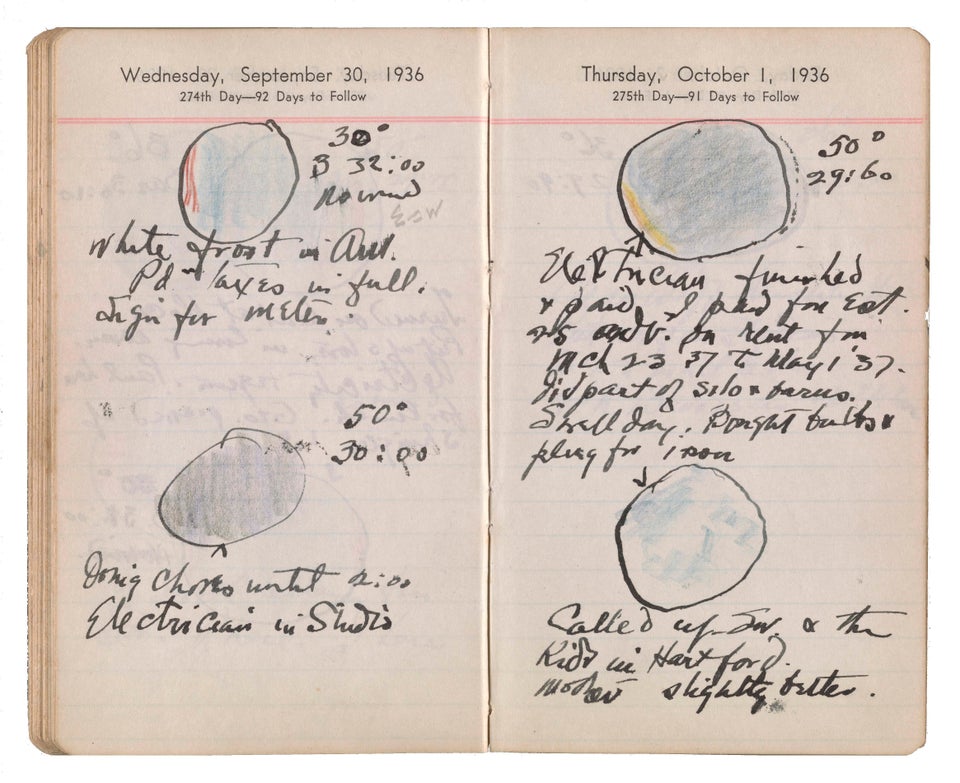 Wednesday, September 30, 1936
274th Day—92 Days to Follow
30°
B 32:00
No wind
White frost in
Pd. Taxes in full.
Sign for meter.
50°
30:00
Doing chores until 2:00
Electrician in Studio
Thursday, October 1, 1936
275th Day—91 Days to Follow
50°
29:60
Electrician finished
& paid. I paid for Est.
25 on rent for
Mch 23 37 to May 1 '37.
Did part of silo & barns.
Swell day. Bought bulbs &
plug for iron
Called up & the
Kids in Hartford.
Mother slightly better.